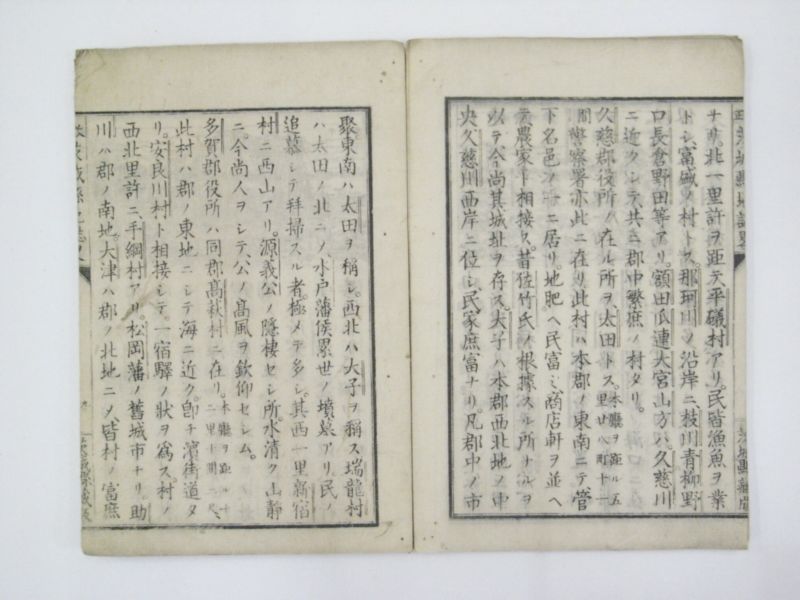 ナリ。北一里許ヲ距テ平磯村アリ。民皆漁魚ヲ業
トシ、富盛ノ村トス。那珂川ノ沿岸ニ枝川青柳野
口長倉野田等アリ。額田瓜連大宮山方ハ、久慈川
ニ近クシテ、共ニ郡中繁庶ノ村タリ。
久慈郡役所ノ在ル所ヲ太田トス。本廳ヲ距ル五里廿八町十一間
警察署亦此ニ在リ此村ハ本郡ノ東南ニテ管
下名邑ノ一ニ居リ。地肥ヘ民富ミ、商店軒ヲ並ヘ
テ農家ト相接ス。昔佐竹氏ノ根據スル所ナルヲ
以テ今尚其城址ヲ存ス。大子ハ本郡西北地ノ中
央久慈川西岸ニ位シ、民家庶富ナリ。凡郡中ノ市
聚東南ハ太田ヲ稱シ。西北ハ大子ヲ稱ス瑞龍村
ハ太田ノ北ニメ、水戸藩侯累世ノ墳墓アリ民ノ
追慕シテ拜掃スル者。極メテ多シ。其西一里新宿
村ニ西山アリ。源義公ノ隱棲セシ所水清ク山靜
ニ。今尚人ヲシテ、公ノ高風ヲ欽仰セシム。
多賀郡役所ハ同郡髙萩村ニ在リ。本廳ヲ距ル十
此村ハ郡ノ東地ニシテ海ニ近ク。卽チ濱街道タ
リ。安良川村ト相接シテ。一宿驛ノ狀ヲ爲ス。村ノ
西北里許ニ、手綱村アリ。松岡藩ノ舊城市ナリ。助
川ハ郡ノ南地。大津ハ郡ノ北地ニメ、皆村ノ富庶